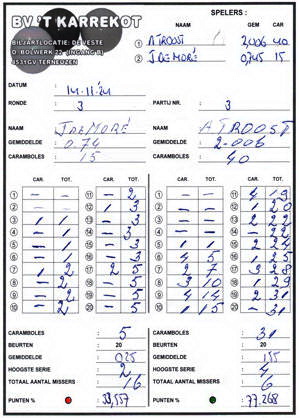 BV 'T KARREKOT
BILJARTLOCATIE: DE VESTE
O. BOLWERK 22 (INGANG B)
4531GV TERNEUZEN
SPELERS :
NAAM GEM CAR
1 A TROOST 2,006 40
2 J DEMORÉ 0,745 15
DATUM : 14-11-'24
RONDE : 3 PARTIJ NR. : 3
NAAM JDEMORÉ NAAM ATROOST
GEMIDDELDE : 0.74 GEMIDDELDE : 2-006
CARAMBOLES : 15 CARAMBOLES : 40
BEURT CAR. TOT. BEURT CAR. TOT. BEURT CAR. TOT. BEURT CAR. TOT.
1 - - 11 - 2 1 - - 11 4 19
2 - - 12 1 3 2 - - 12 1 20
3 1 1 13 - 3 3 - - 13 2 22
4 - 1 14 - 3 4 - - 14 - 22
5 - 1 15 5 5 15 2 24
6 - 1 16 6 5 16 1 25
7 1 2 17 2 5 7 2 7 17 3 28
8 - 2 18 - 5 8 3 10 18 1 29
9 - 2 19 - 5 9 4 14 19 2 31
10 - 2 20 - 5 10 1 15 20 - 31
CARAMBOLES : 5 CARAMBOLES : 31
BEURTEN : 20 BEURTEN : 20
GEMIDDELDE : 025 GEMIDDELDE : 155
HOOGSTE SERIE : 2 HOOGSTE SERIE : 4
TOTAAL AANTAL MISSERS : 16 TOTAAL AANTAL MISSERS : 6
PUNTEN % : 33,557 PUNTEN % : 77.268